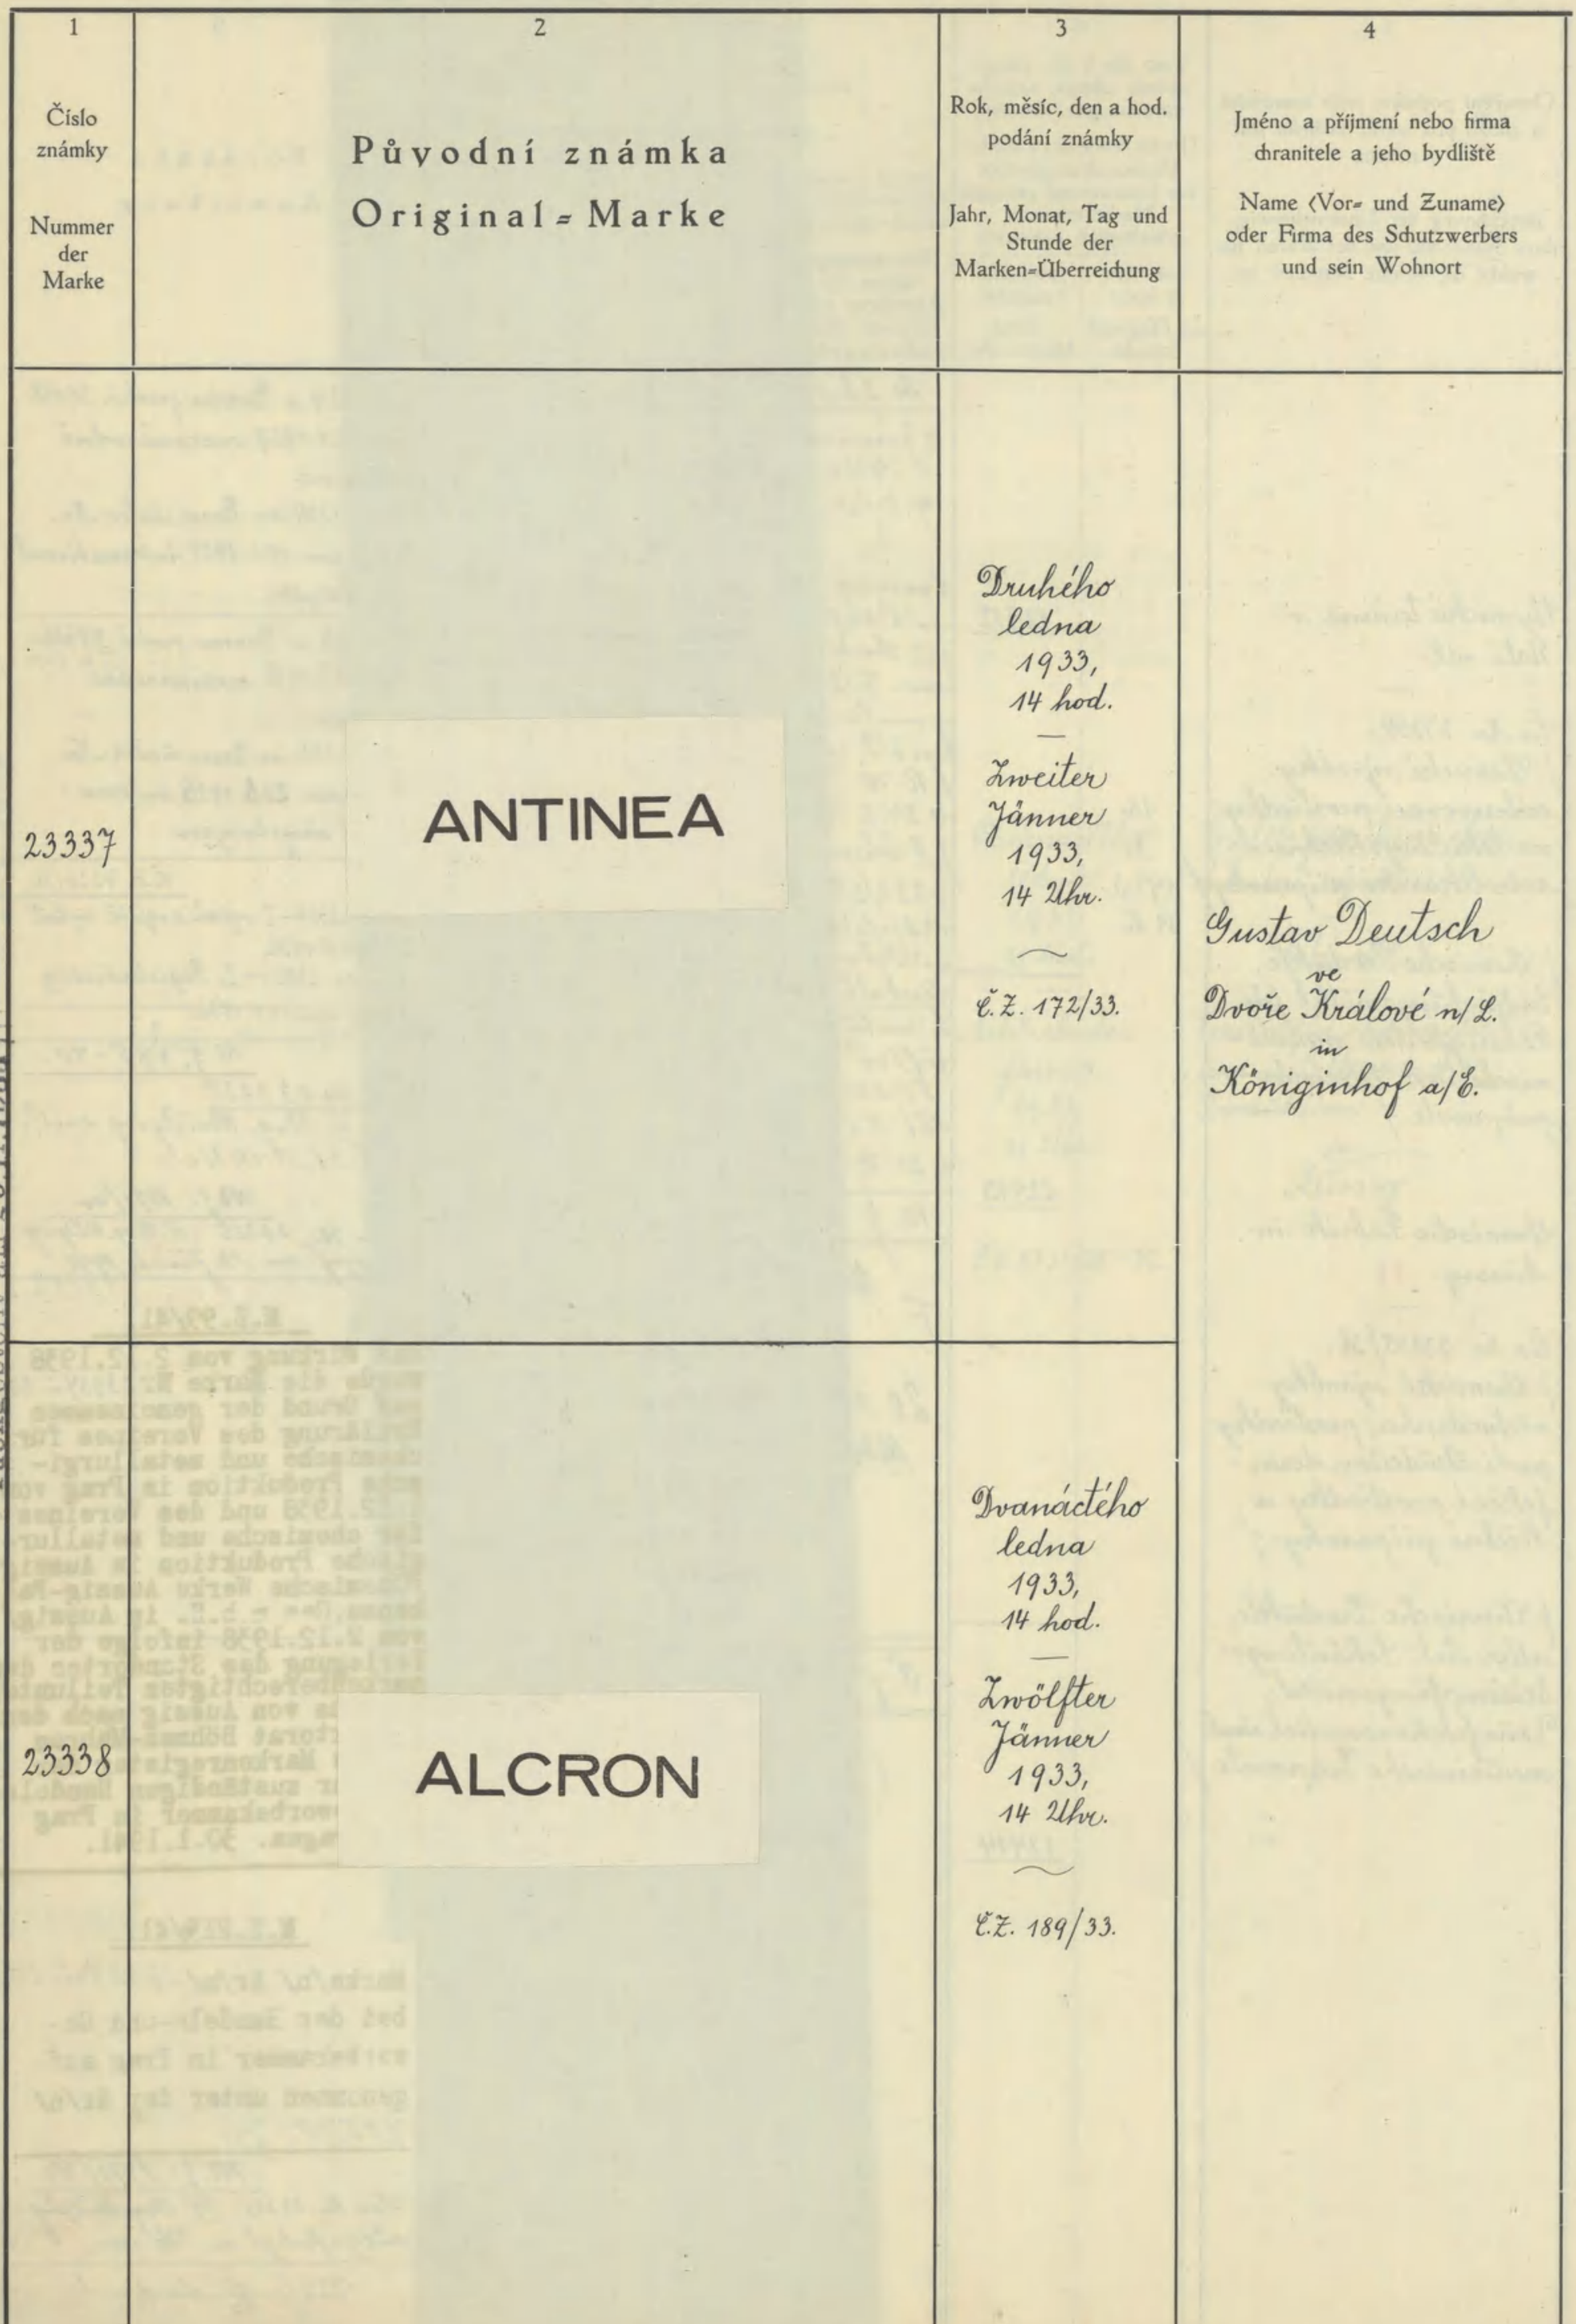 1
2
3
4
Číslo
známky
Nummer
der
Marke
Původní známka
Original=Marke
Rok, měsíc, den a hod.
podání známky
Jahr, Monat, Tag und
Stunde der
Marken=Überreichung
Jméno a příjmení nebo firma
chranitele a jeho bydliště
Name (Vor= und Zuname)
oder Firma des Schutzwerbers
und sein Wohnort
23337
ANTINEA
Druhého
ledna
1933,
14 hod.
—
Zweiter
Jänner
1933,
14 Uhr.
Č.Z. 172/33.
Gustav Deutsch
ve
Dvoře Králové n/L.
in
Königinhof a/E.
23338
ALCRON
Dvanáctého
ledna
1933,
14 hod.
—
Zwölfter
Jänner
1933,
14 Uhr.
Č.Z. 189/33.